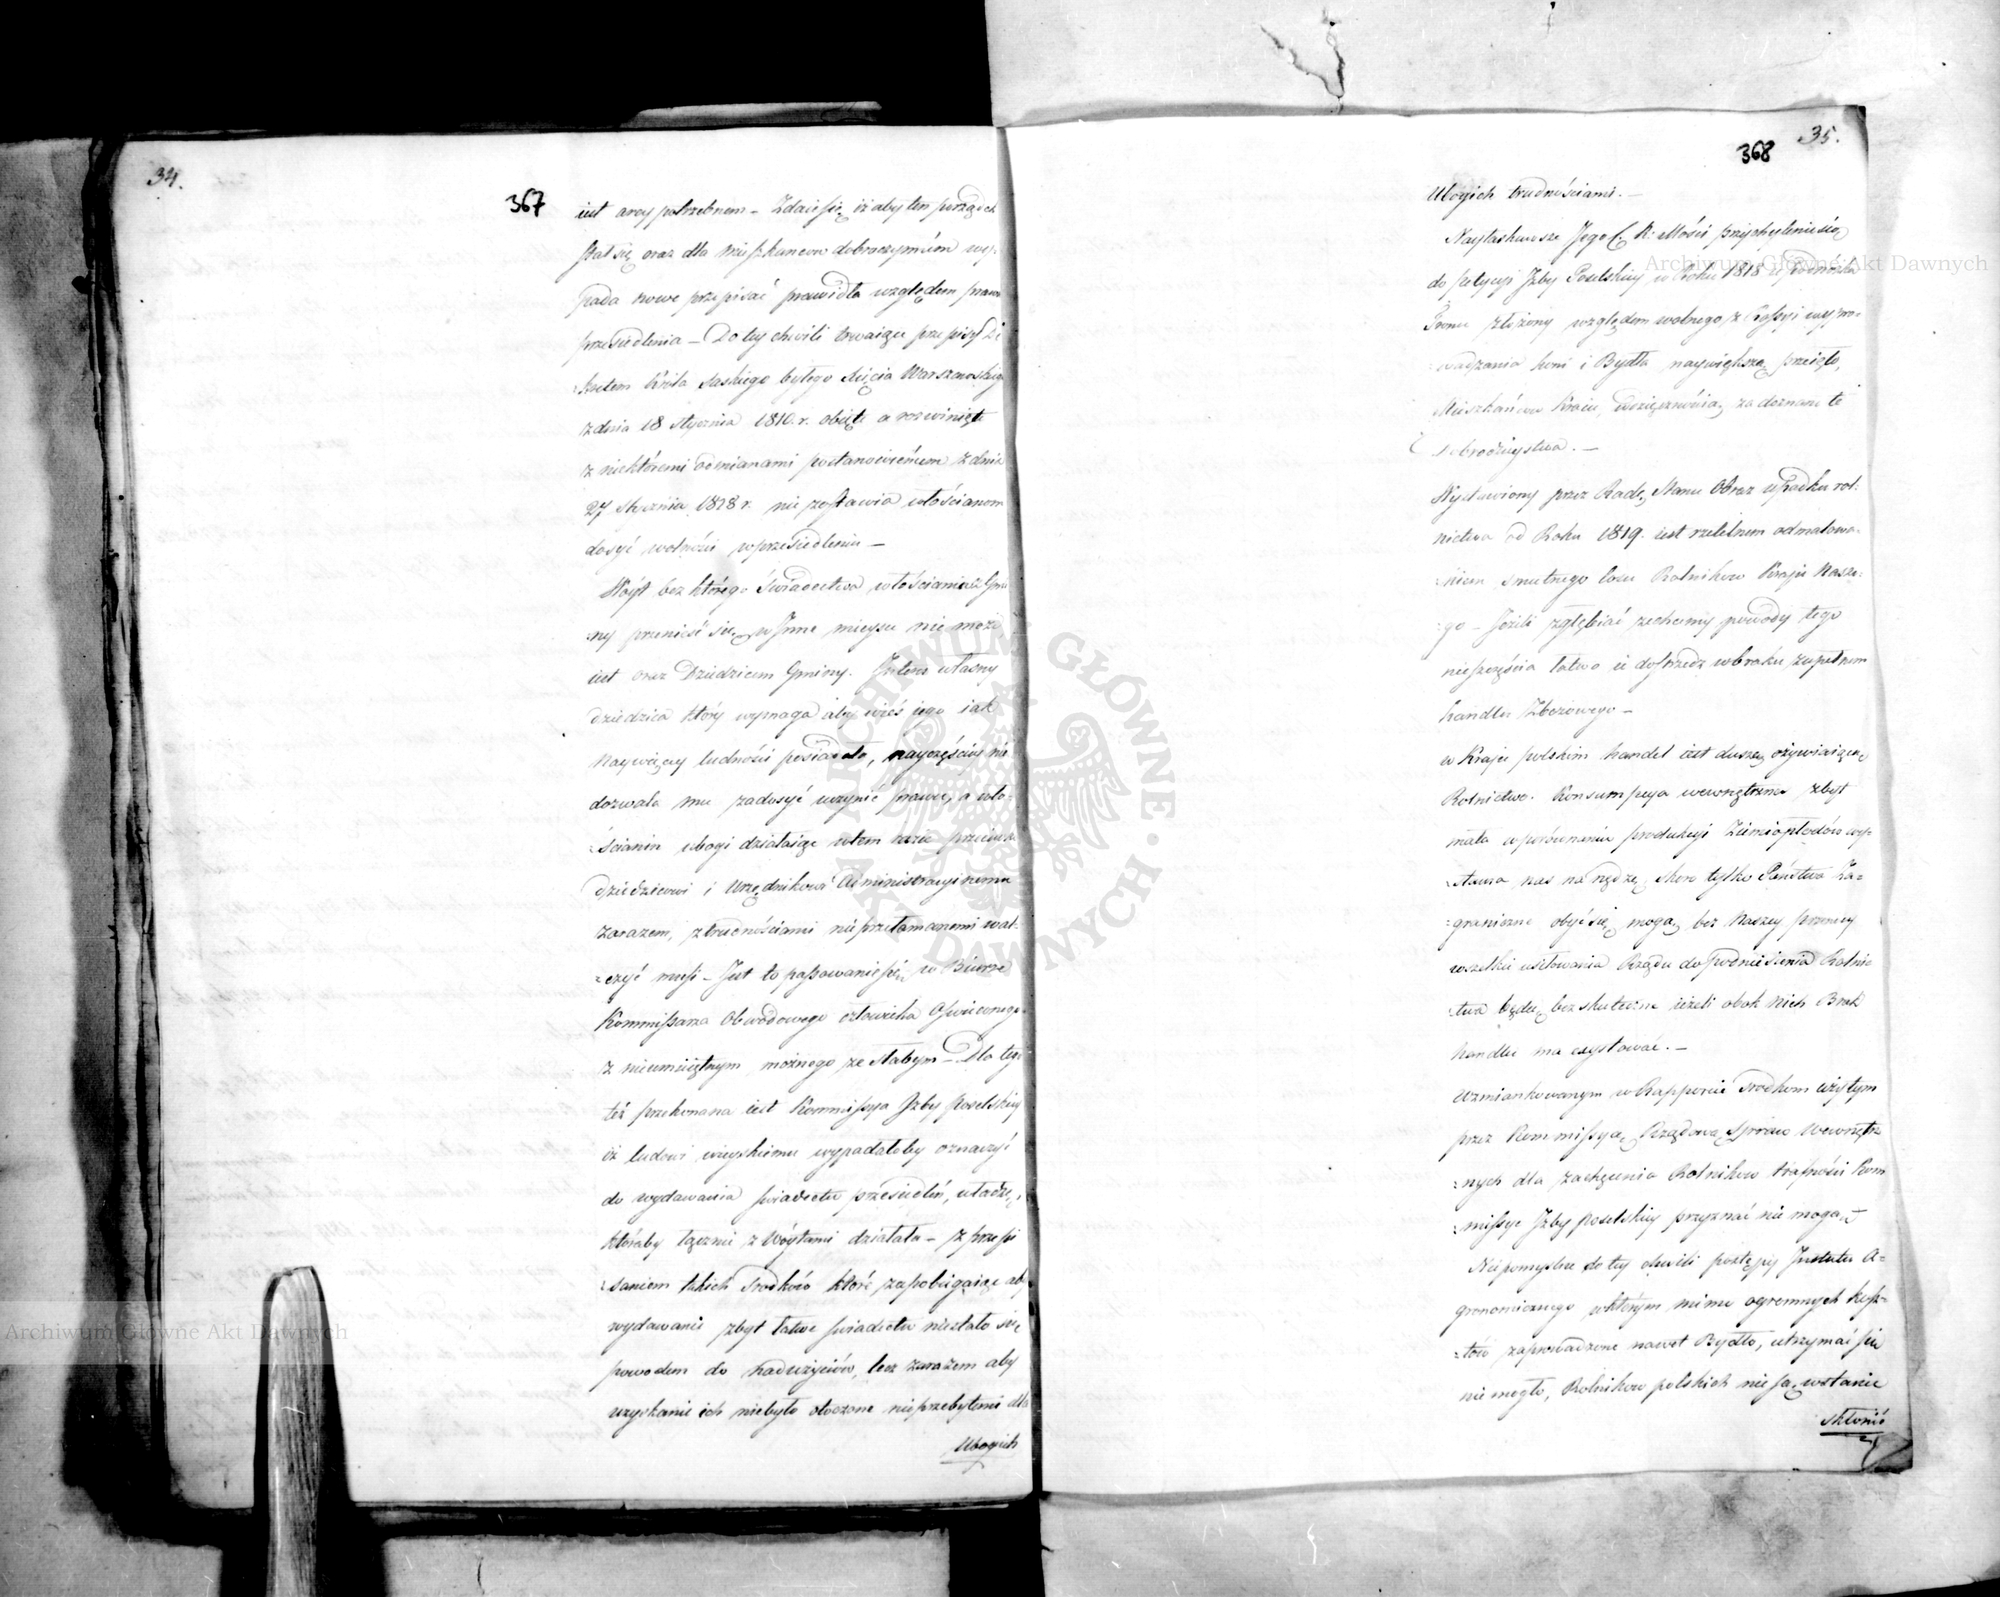 34.
367
iest arcypotrzebnem – Zdaie się iż aby ten porządek
stał się oraz dla mieszkancow dobroczynném wy-
pada nowe przepisać prawidła względem prawa
przesiedlenia – Do tey chwili trwaiące przepisy De
kretem Króla Saskiego byłego Xięcia Warszawskiego
z dnia 18 stycznia 1810. r. obięte a rozwinięte
z niektóremi odmianami postanowieniem z dnia
24 stycznia 1818 r. nie zostawia włościanom
dosyć wolności w przesiedleniu –
Wóyt bez którego świadectwa włościanin z Gmi
ny przenieść się w Inne mieysce nie może
iest oraz Dziedzicem Gminy. Interes własny
dziedzica który wymaga aby wieś iego iak
naywięcey ludności posiadała, nayczęściey nie
dozwala mu zadosyć uczynić prawu, a wło-
-ścianin ubogi działaiąc w tem razie przeciwko
dziedzicowi i Urzędnikowi Administracyinemu
zarazem, z trudnościami nieprzełamanemi wal-
-czyć musi – Jest to passowanie się w Biurze
Kommissarza Obwodowego człowieka Oświeconego
z nieumiejętnym możnego ze słabym – Dla tego
też przekonana iest Kommissya Izby Poselskiey
iż ludowi wieyskiemu wypadałoby oznaczyć
do wydawania świadectw przesiedleń, władzę,
któraby łącznie z Wóytami działała – z przepi
-saniem takich srodków które zapobiegaiąc aby
wydawanie zbyt łatwe świadectw niestało się
powodem do nadużyciów, lecz zarazem aby
uzyskanie ich niebyło otoczone nieprzebytemi dla
Ubogich
35.
368
Ubogich trudnościami. –
Nayłaskawsze Jego C. K. Mości przychylenie się
do petycyi Izby Poselskiey w Roku 1818 u podnóża
Tronu złożoney względem wolnego z Rossyi wypro-
-wadzania koni i Bydła naywiększą przeięło,
Mieszkańcow Kraiu wdzięcznością za doznane te
dobrodzieystwa. –
Wystawiony przez Radę Stanu Obraz upadku rol-
nictwa od Roku 1819. iest rzetelnem odmalowa-
-niem smutnego losu Rolnikow Kraju Nasze-
-go – Jeżeli zgłębiać zechcemy powody tego
nieszczęścia łatwo ie dostrzedz w braku zupełnem
handlu Zbożowego –
w Kraju polskim handel iest duszą ożywiaiącą
Rolnictwo. Konsumpcya wewnętrzna zbyt
mała w porównaniu produkcyi Ziemiopłodów wy-
-stawia nas na nędzę skoro tylko Państwa Za-
-graniczne obyć się mogą bez Naszey przenicy
wszelkie usiłowania Rządu do podniesienia Rolnic
-twa będą bezskuteczne ieżeli obok nich Brak
handlu ma exystować. –
Wzmiankowanym w Rapporcie srodkom użytym
przez Kommissyą Rządową Spraw Wewnętrz
-nych dla zachęcenia Rolnikow trafności Kom
-missye Izby poselskiey przyznać nie mogą. –
Niepomyślne do tey chwili postępy Instututu A-
gronomicznego w którym mimo ogromnych kosz-
-tów zaprowadzone nawet Bydło, utrzymać się
nie mogło, Rolnikow polskich nie są w stanie
skłonić
ARCHIWUM GŁÓWNE AKT DAWNYCH
Archiwum Główne Akt Dawnych
Archiwum Główne Akt Dawnych